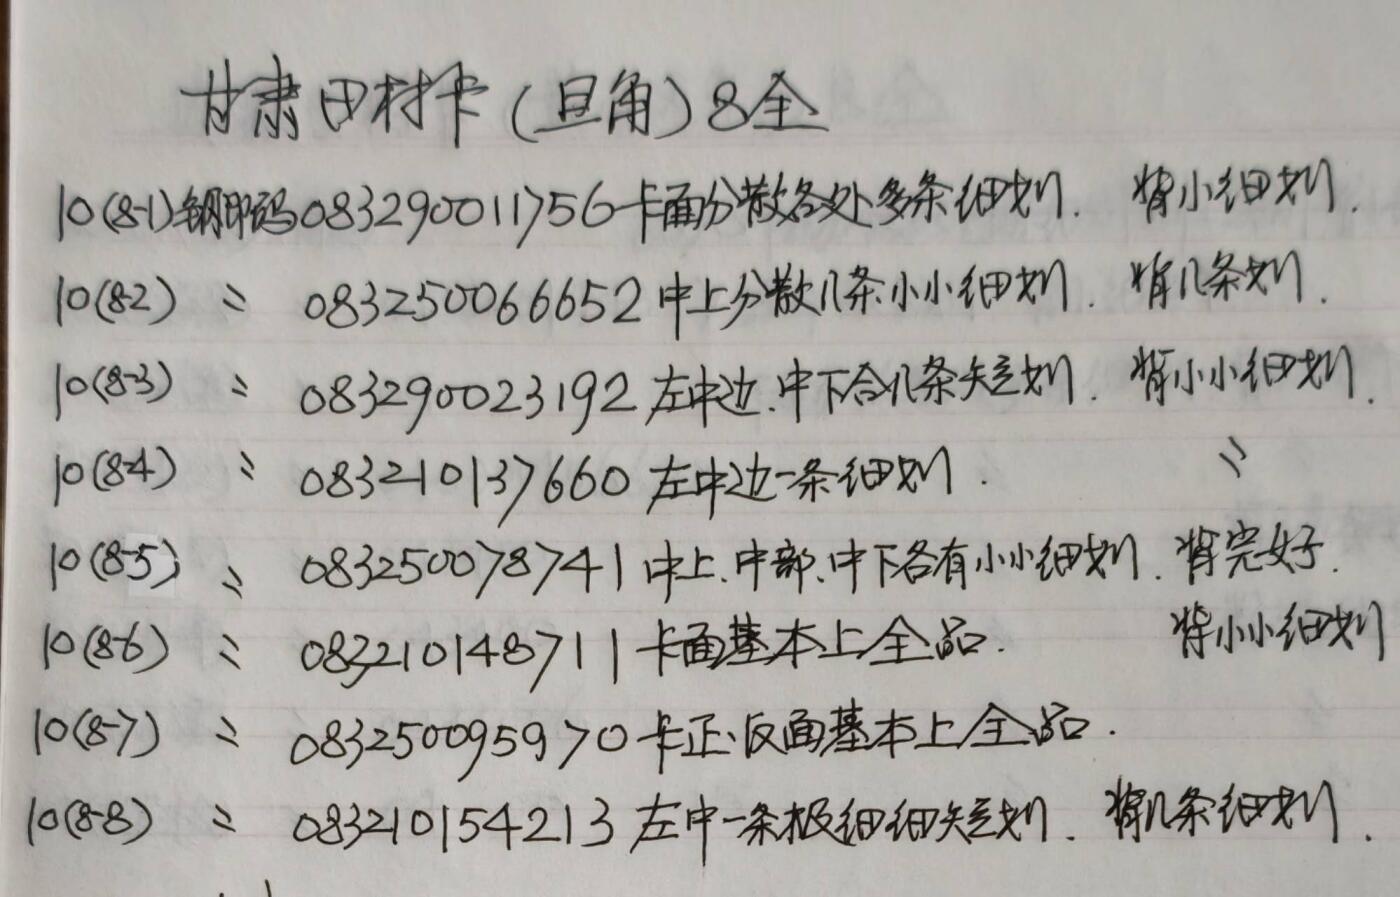 甘肃田村卡(旦角)8全
10(8-1)钢印码083290011756卡面分散各处多条细划. 背小细划.
10(8-2) 〃 083250066652中上分散几条小小细划. 背几条划.
10(8-3) 〃 083290023192左中边.中下合几条短划. 背小小细划.
10(8-4) 〃 083210137660左中边一条细划. 〃
10(8-5) 〃 083250078741中上.中部.中下各有小小细划. 背完好.
10(8-6) 〃 083210148711卡面基本上全品. 背小小细划
10(8-7) 〃 083250095970卡正、反面基本上全品.
10(8-8) 〃 083210154213左中一条极细细短划. 背几条细划.